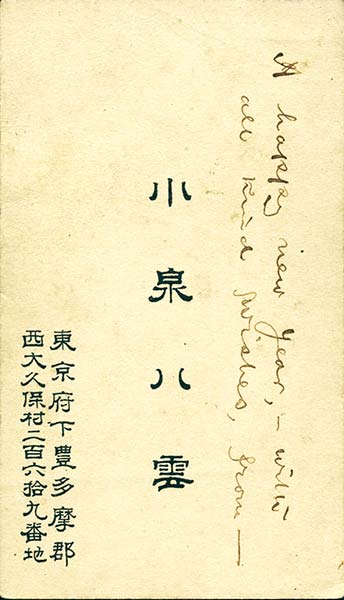 A happy new Year, – with
all kind wishes, from —
小泉八雲
東京府下豊多摩郡
西大久保村二百六拾九番地